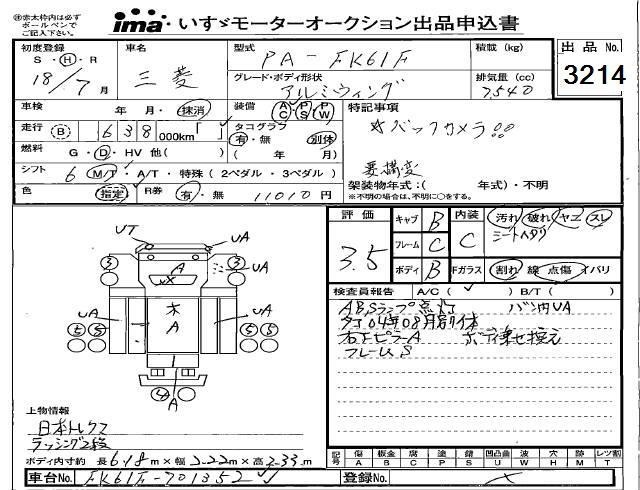 ※赤太枠内は必ず
ボールペンで
ご記入下さい。
ima・いすゞモーターオークション出品申込書
初度登録
S・H・R
18/7月
車名
三菱
型式
PA-FK61F
グレード・ボディ形状
アルミウィング
積載(kg)
排気量(cc)
7540
出品No.
3214
車検 年 月・抹消
装備 AC PS PW
特記事項
走行 B 638 000km「 」
タコグラフ
有・無 別体
( 年 月)
☆バックカメラ!!
燃料 G・D・HV 他( )
シフト 6 M/T・A/T・特殊(2ペダル・3ペダル)
要構変
架装物年式:( 年式)・不明
※不明の場合は、不明に○をする。
色 指定 R券 有・無 11010円
評価
3.5
キャブ B
フレーム C
ボディ B
内装 C
汚れ 破れ ヤニ スレ
シートヘタリ
Fガラス 割れ 線 点傷 イバリ
検査員報告 A/C( ) B/T( )
ABSランプ点灯 バン内UA
タコ04年08月別体
右下ピラーA ボディ乗せ換え
フレームS
UT
UA
3
3
A
UX
UA
木
A
UA
UA
5 5
5 5
4
A
上物情報
日本トレクス
ラッシング2段
ボディ内寸約 長6.18m×幅2.22m×高2.33m
記号
傷 板金 腐 塗 錆 凹凸曲 波 穴 跡 レツ割
A B C P S U W H M T
車台No. FK61F-701352
登録No.